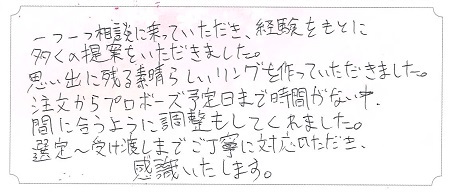 一つ一つ相談に乗っていただき、経験をもとに
多くの提案をいただきました。
思い出に残る素晴らしいリングを作っていただきました。
注文からプロポーズ予定日まで時間がない中、
間に合うように調整もしてくれました。
選定〜受け渡しまでご丁寧に対応いただき、
感謝いたします。